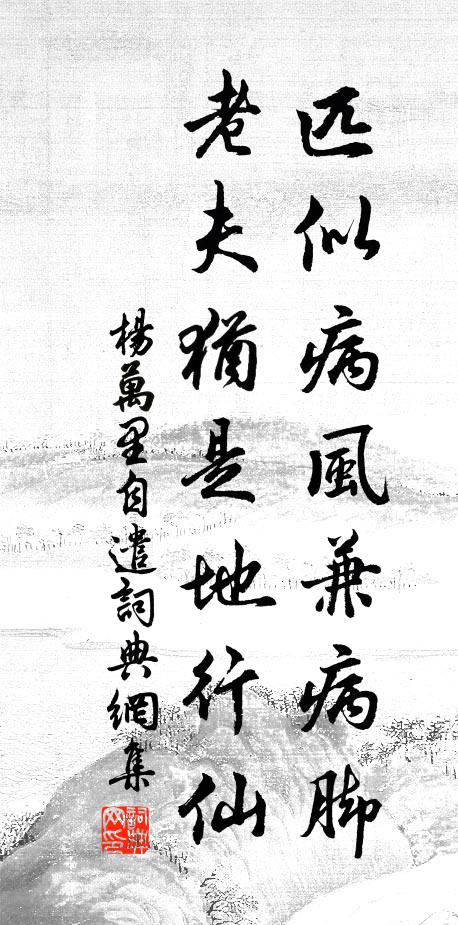 匹似病風兼病脚
老夫猶是地行仙
楊萬里自遣詞典網集